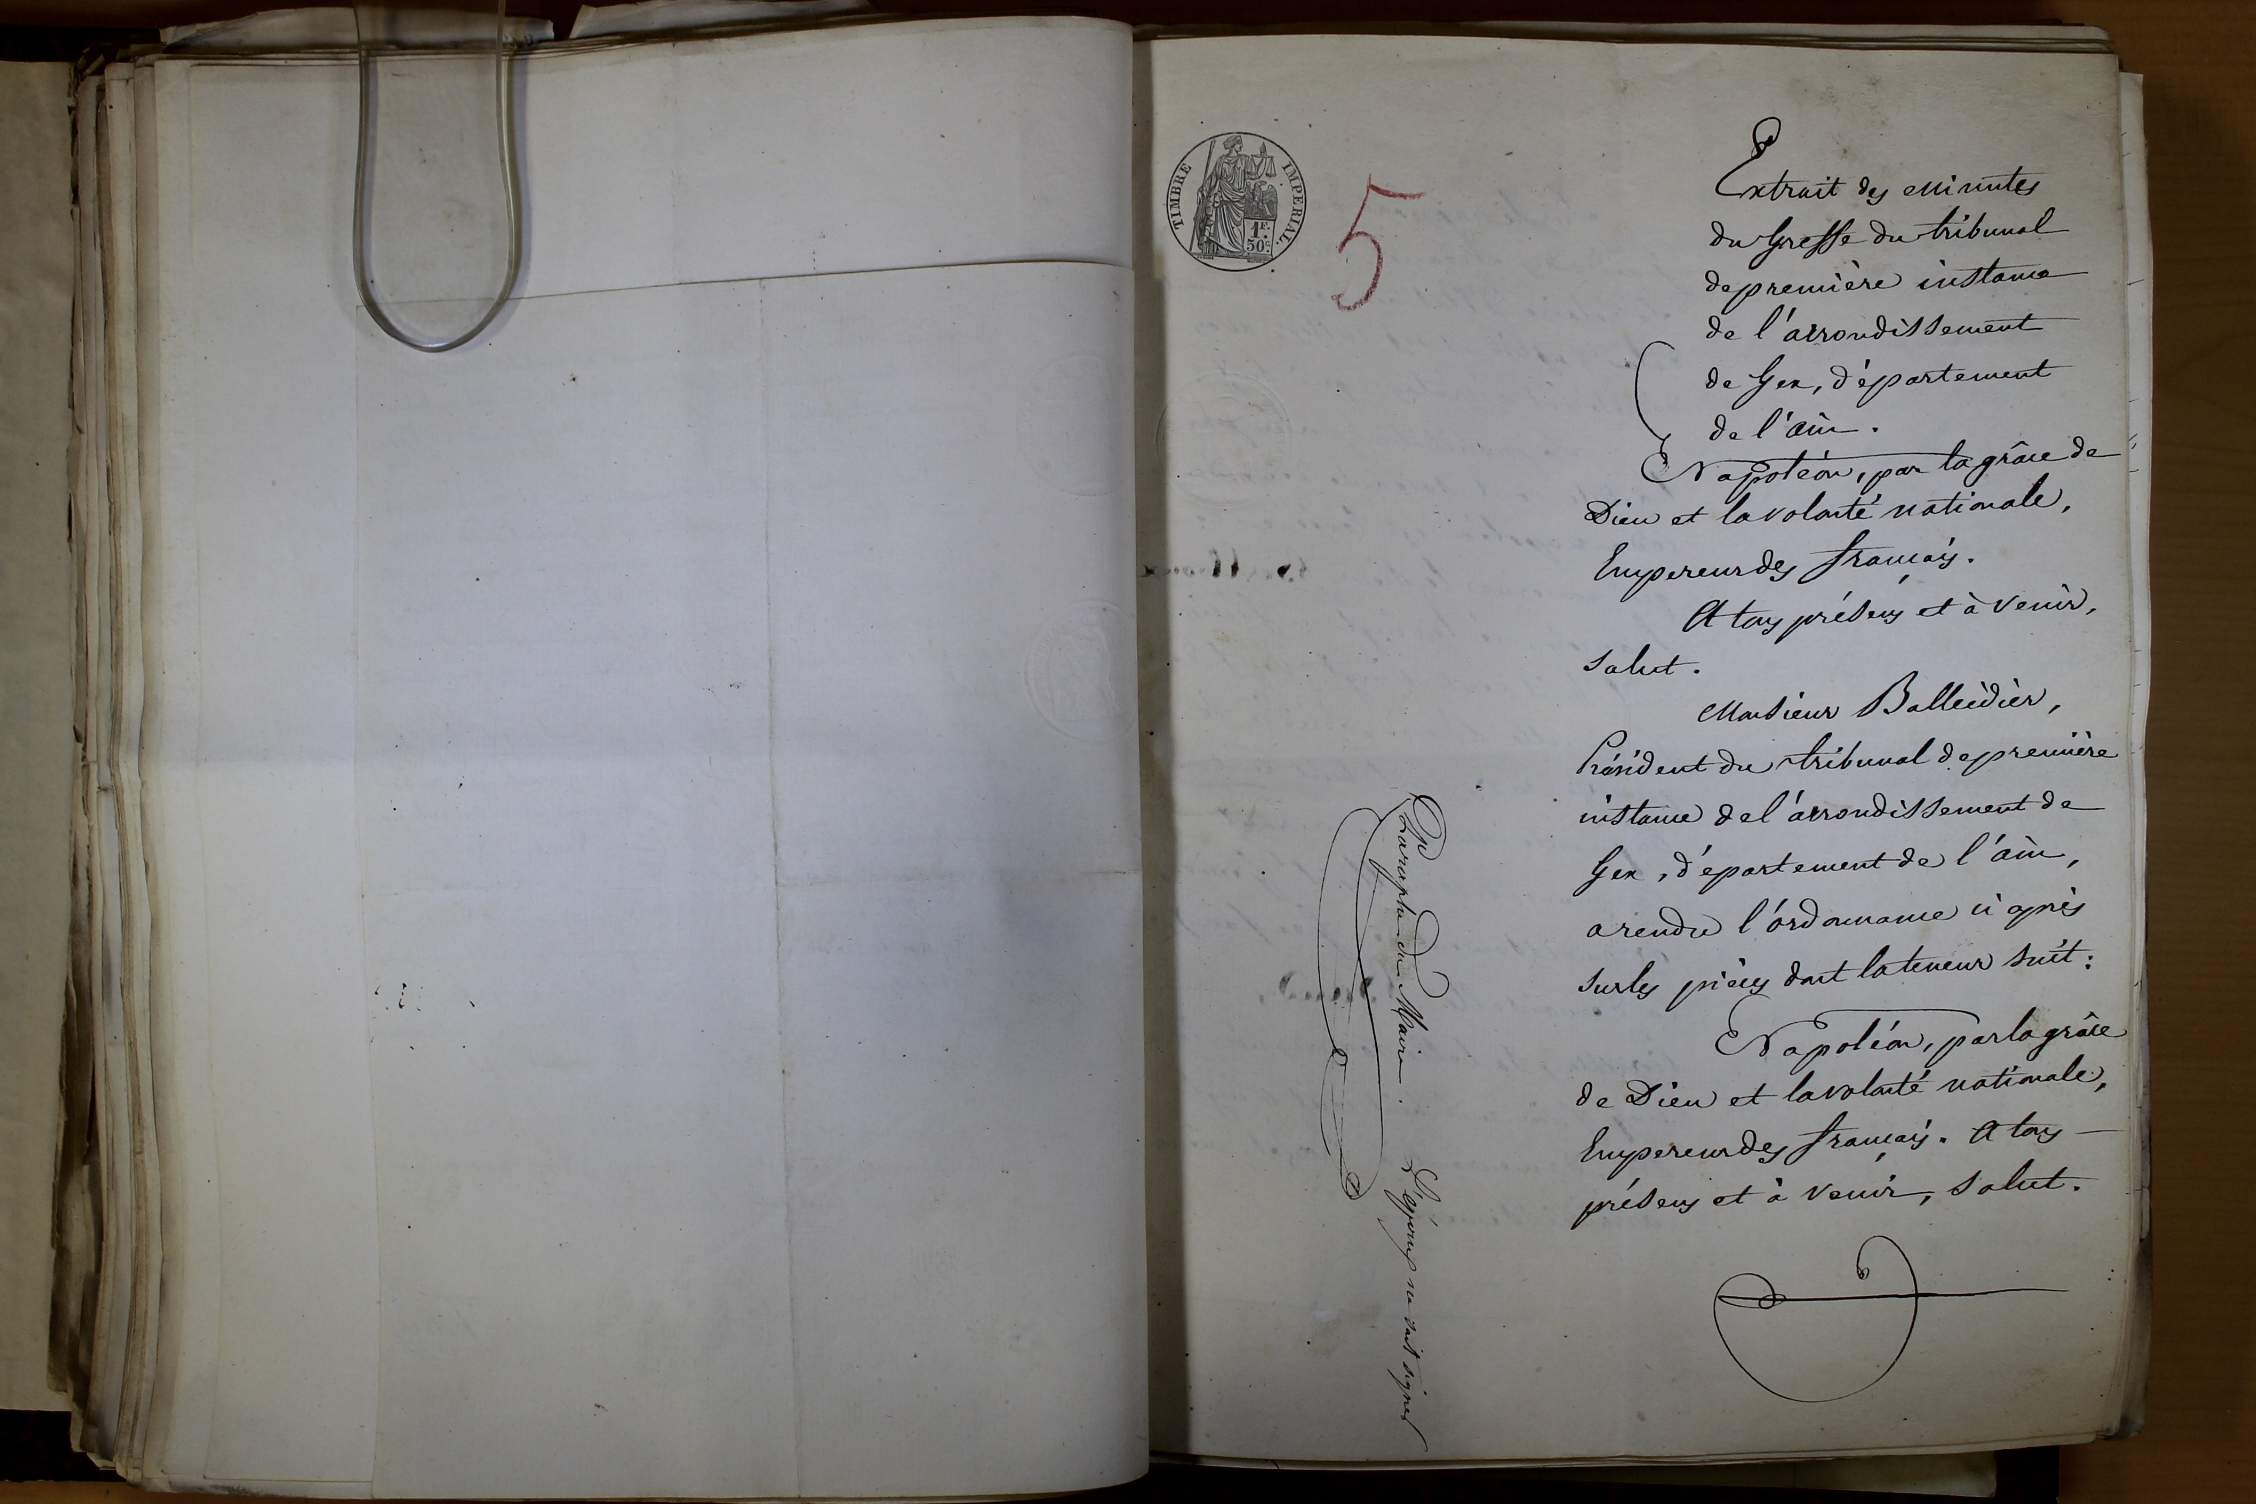 TIMBRE IMPERIAL.
1F.
50c.
5
Extrait des Minutes
du Greffe du tribunal
de première instance
de l'arrondissement
de Gex, département
de l'ain.
Napoléon, par la grâce de
Dieu et la volonté nationale,
Empereur des français.
A tous présens et à venir,
salut.
Monsieur Balleidier,
Président du tribunal de première
instance de l'arrondissement de
Gex, département de l'ain,
a rendu l'ordonnance ci après
sur les pièces dont la teneur suit:
Napoléon, par la grâce
de Dieu et la volonté nationale,
Empereur des français. A tous
présens et à venir, salut.
Paraphe du Maire.
L'époux ne sait signer